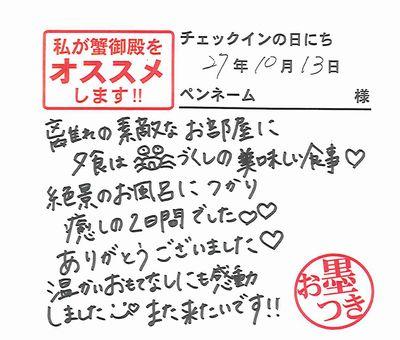 私が蟹御殿を
オススメ
します!!
チェックインの日にち
27年10月13日
ペンネーム 様
離れの素敵なお部屋に
夕食は づくしの美味しい食事♡
絶景のお風呂につかり
癒しの2日間でした♡♡
ありがとうございました♡
温かいおもてなしにも感動
しました また来たいです!!
お墨つき